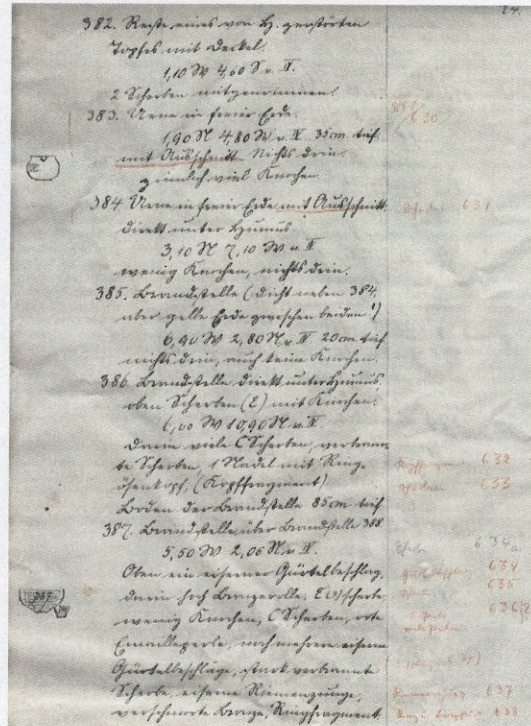 24.
382. Reste eines von H. zerstörten
Topfes mit Deckel
1,10 W 4,60 S v. II.
2 Scherben mitgenommen
383. Urne in freier Erde.
630
1,90 N 4,80 W v. II 35 cm tief
mit Ausschnitt Nichts drin.
ziemlich viel Knochen
384 Urne in freier Erde mit Ausschnitt
631
direkt unter Humus
3,10 N 7,10 W v. II
wenig Knochen, nichts drin.
385. Brandstelle (dicht neben 384,
aber gelbe Erde zwischen beiden!)
6,90 W 2,80 N v. II 20 cm tief
nichts drin, auch keine Knochen.
386. Brandstelle direkt unter Humus.
oben Scherben (E) mit Knochen.
6,00 W 10,90 N v. II.
Darin viele C Scherben, verbrann
te Scherben, 1 Nadel mit Ring
632
ösenkopf. (Kropffragment)
633
Boden der Brandstelle 85 cm tief
387. Brandstelle über Brandstelle 388
634a
5,50 W 2,05 N v. II.
Oben ein eiserner Gürtelbeschlag,
634
darin hoch Bronzerolle,
635
wenig Knochen, C Scherben, rote
636
Emailleperle, noch mehrere eiserne
Gürtelbeschläge, stark verbrannte
Scherbe, eiserne Riemenzunge,
637
verschmorte Bronze, Ringfragment
638